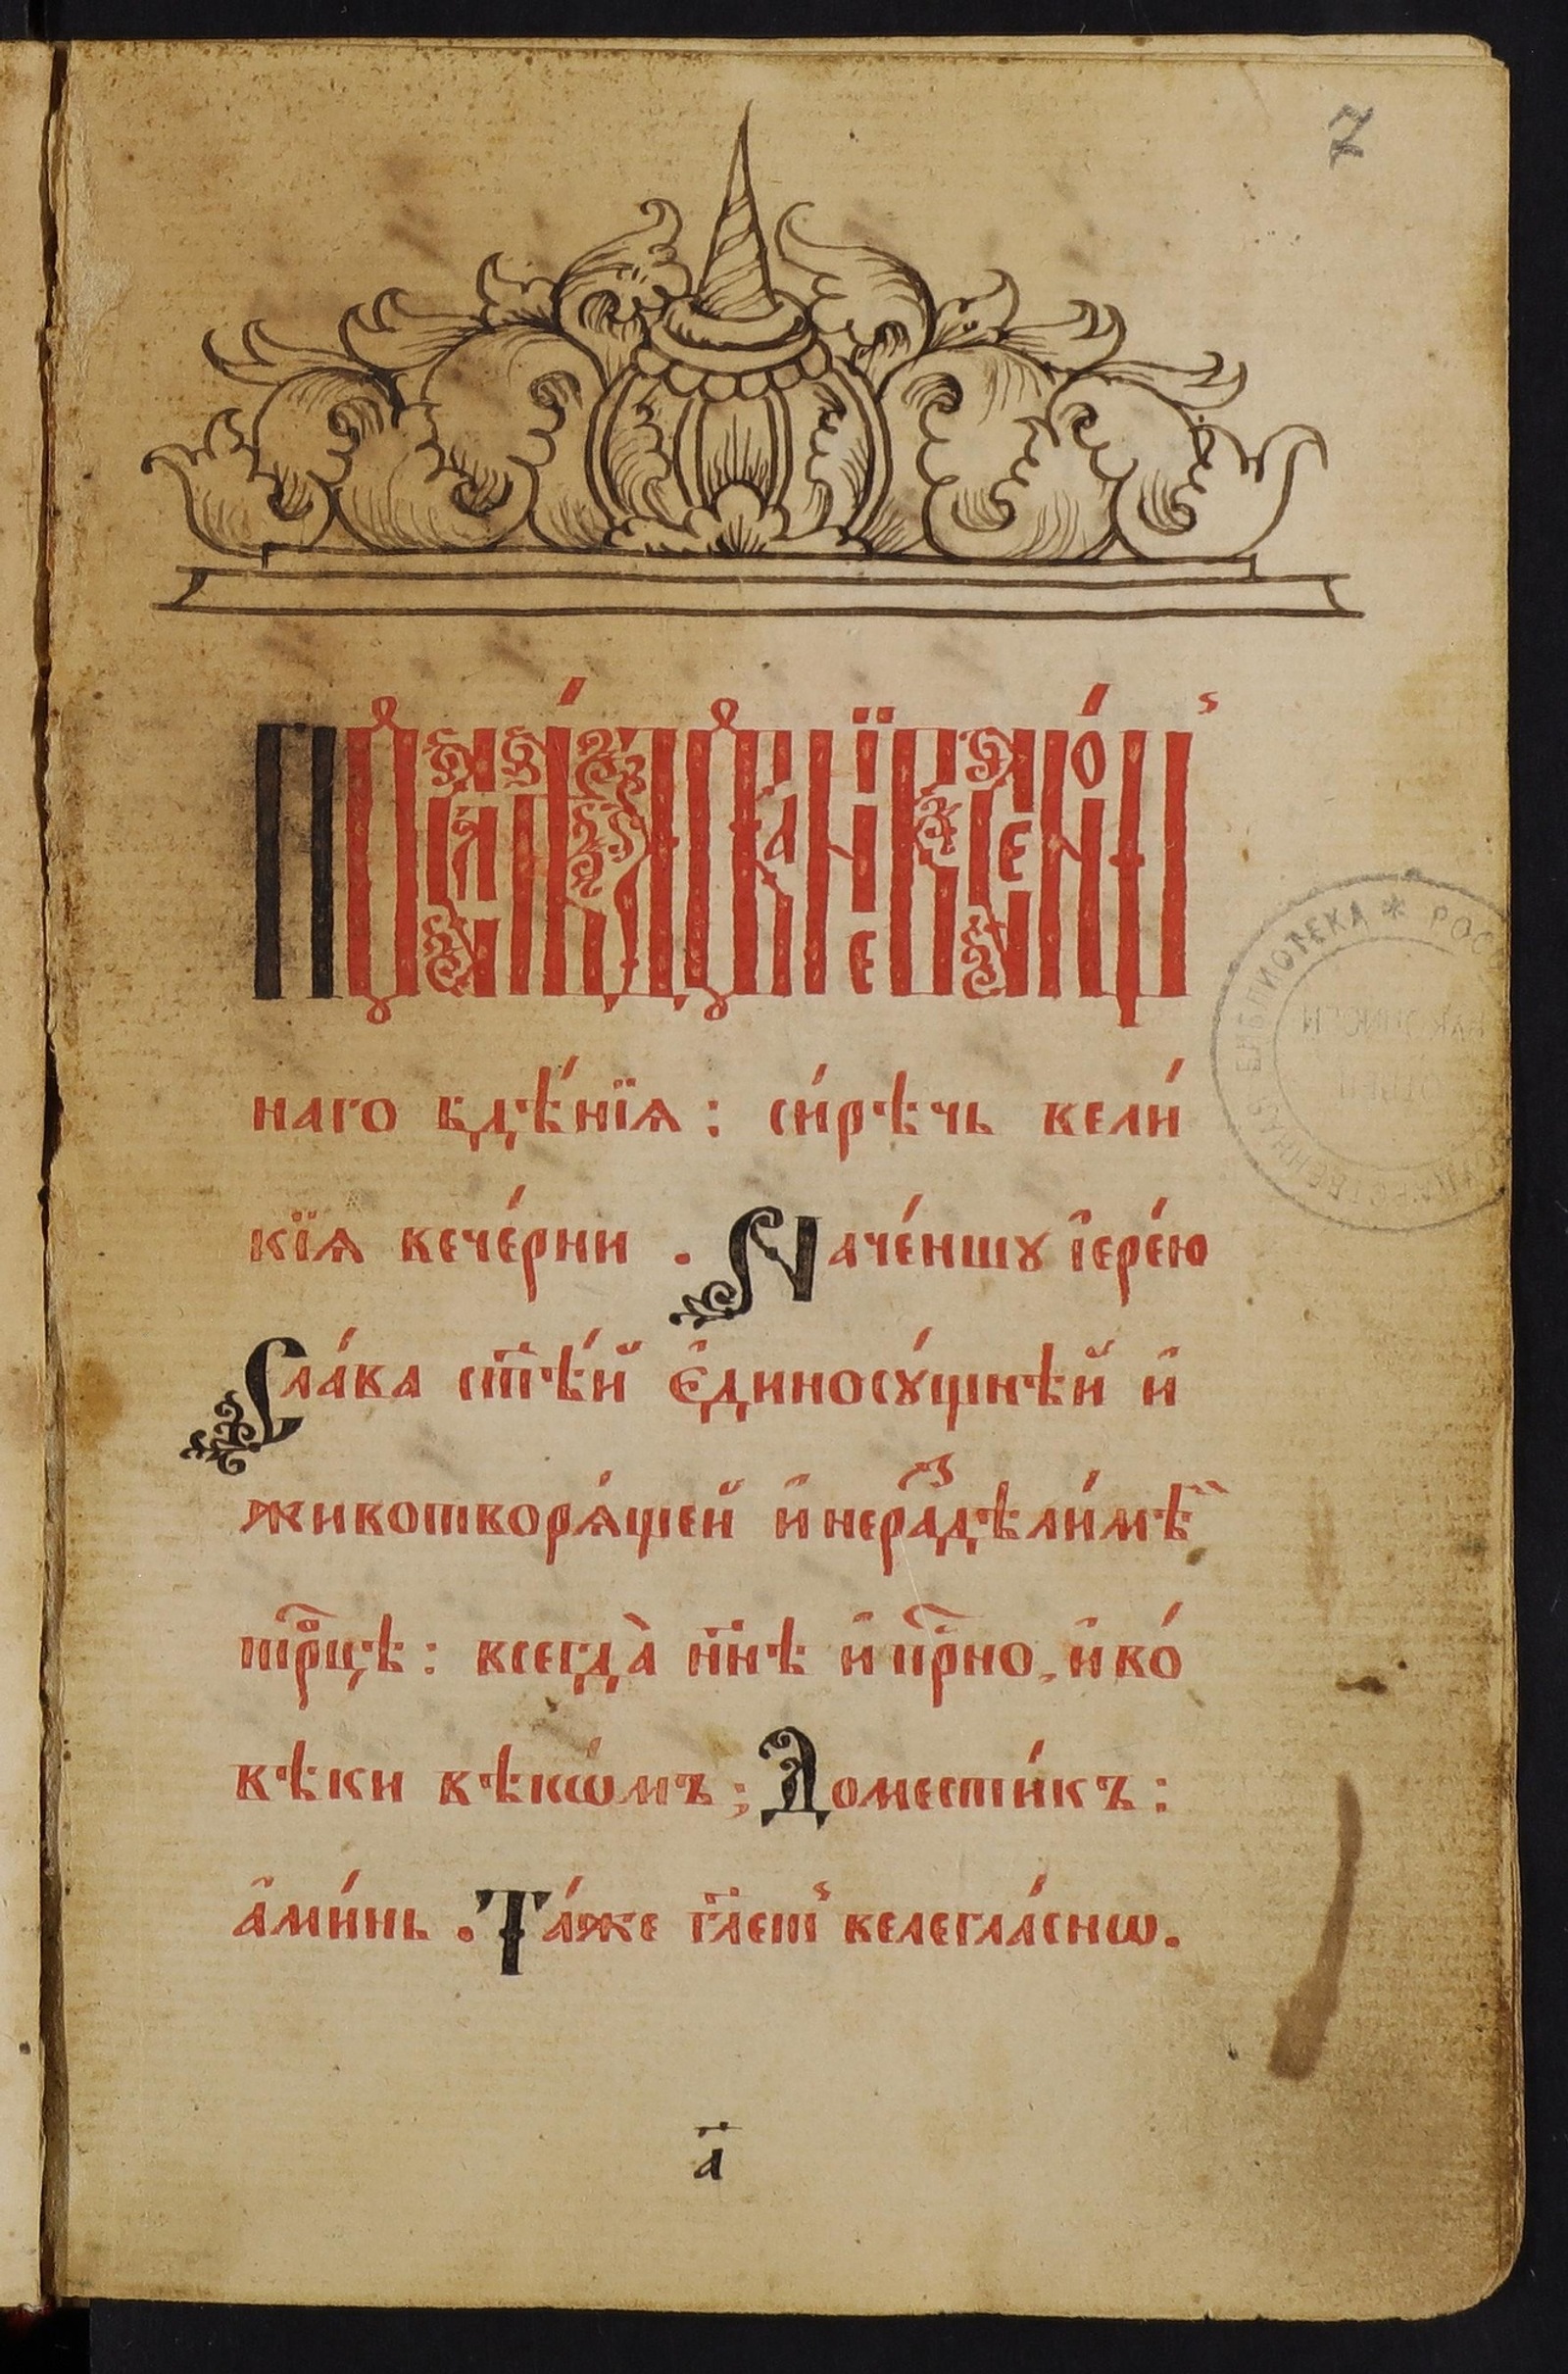 7
Послѣ́дованїе всено́щ
наго бдѣ́нїѧ : си́рѣчь вели́
кїѧ вече́рни . Наче́ншꙋ і҆ере́ю
Сла́ва ст҃ѣ́й є҆диносꙋ́щнѣй и҆
животворѧ́щей и҆ нераⷥдѣли́мѣй
трⷪ҇цѣ : всегда̀ нн҃ѣ и҆ прⷭ҇но , и҆ во́
вѣки вѣкѡ́мъ ; Домести́къ :
а҆ми́нь . Та́же гл҃етъ велегла́снѡ .
а҃
БИБЛИОТЕКА *